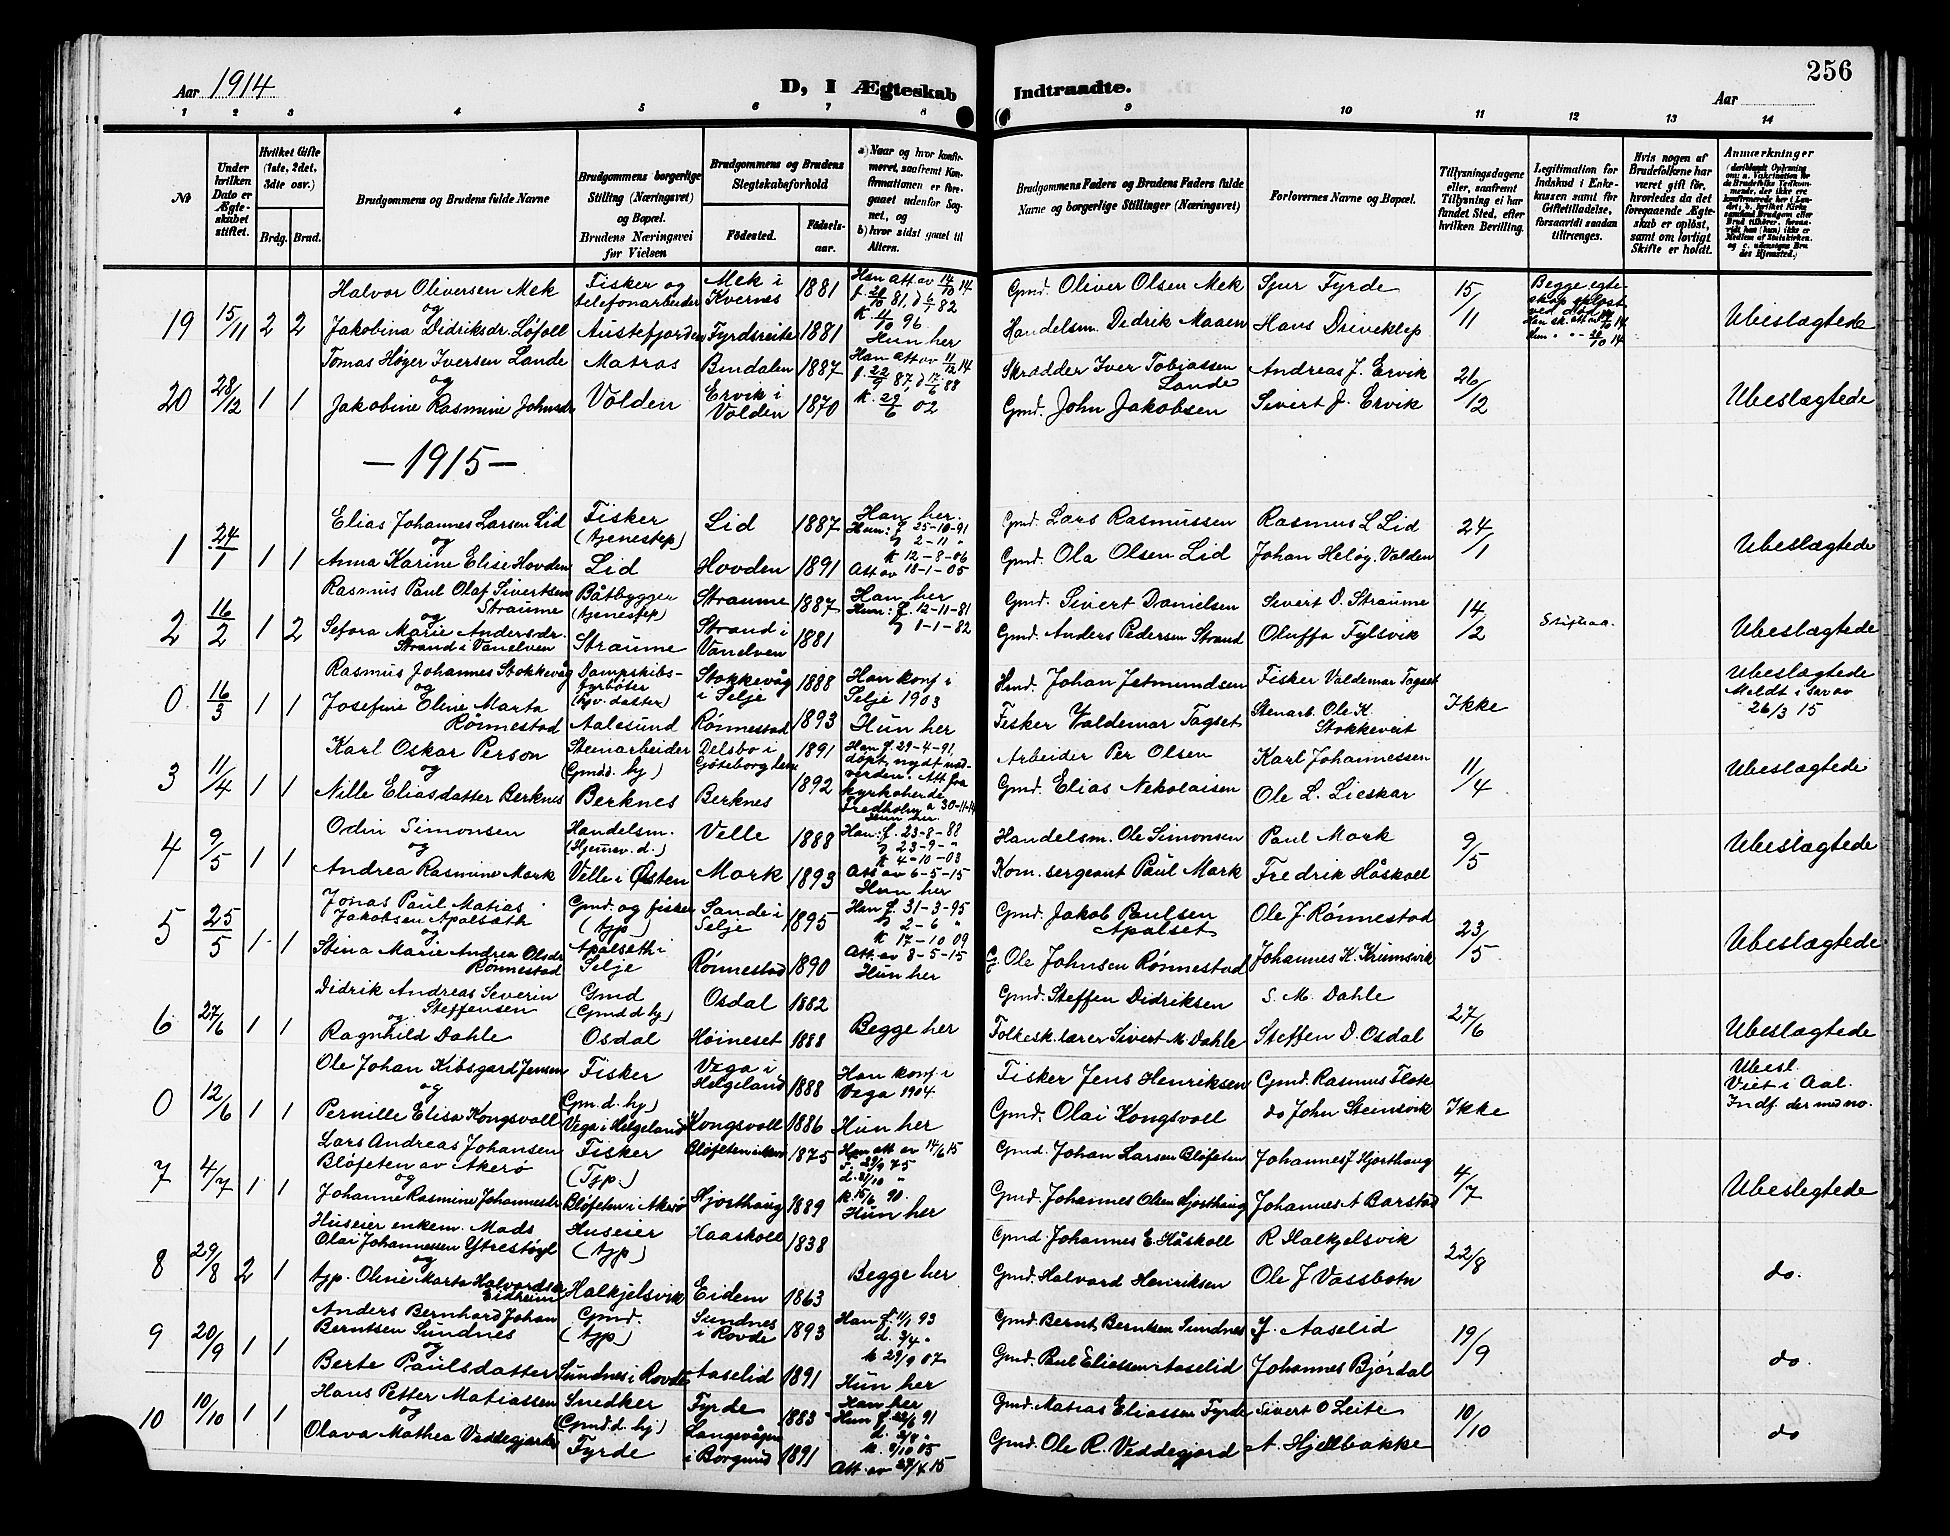 Aar 1914
D, I Ægteskab
Indtraadte.
Aar
256
1 2 3 4 5 6 7 8 9 10 11 12 13 14
№
Under hvilken Dato er Ægteskabet stiftet.
Hvilket Gifte (1ste, 2det, 3die osv.)
Brdg. Brud.
Brudgommens og Brudens fulde Navne
Brudgommens borgerlige Stilling (Næringsvei) og Bopæl. Brudens Næringsvei før Vielsen
Brudgommens og Brudens Slegtskabsforhold
Fødested. Fødselsaar.
a) Naar og hvor konfirmeret, saafremt Konfirmationen er foregaaet udenfor Sognet, og b) hvor sidst gaaet til Alters.
Brudgommens Faders og Brudens Faders fulde Navne og borgerlige Stillinger (Næringsvei)
Forlovernes Navne og Bopæl.
Tillysningsdagene eller, saafremt Tillysning ei har fundet Sted, efter hvilken Bevilling.
Legitimation for Indskud i Enkekassen samt for Giftetilladelse, forsaavidt saadan tiltrænges.
Hvis nogen af Brudefolkene har været gift før, hvorledes da det foregaaende Ægteskab er opløst, samt om lovligt Skifte er holdt.
Anmærkninger
19 15/11 2 2 Halvor Oliversen Mek og Jakobina Didriksdr. Løfoll
Fisker og telefonarbeider Austefjorden
Mek i Kvernes 1881 Fyrdsreite 1881
Han att av 14/10 14 f. 20/10 81, d 6/7 82 k 4/10 96 Hun her
Gmd. Oliver Olsen Mek Handelsm. Didrik Maaen
Sjur Fyrde Hans Driveklep
15/11
Begge egteskap opløst ved død
Ubeslægtede
20 28/12 1 1 Tomas Høger Iversen Lande og Jakobine Rasmine Johnsdr
Matros Volden
Bindalen 1887 Ervik i Volden 1870
Han att av 11/12 14 f. 22/9 87, d 17/6 88 k. 29/6 02
Skrædder Iver Tobiassen Lande Gmd. John Jakobsen
Andreas J. Ervik Sivert J. Ervik
26/12
Ubeslægtede
– 1915 –
1 24/1 1 1 Elias Johannes Larsen Lid og Anna Karine Elise Hovden
Fisker (tjenestep) Lid
Lid 1887 Hovden 1891
Han her. Hun: f 25-10-91 d 2-11 " k 12-8-06 Att av 18-1-05
Gmd. Lars Rasmussen Gmd. Ola Olsen Lid
Rasmus L Lid Johan Heløg. Valden
24/1
Ubeslægtede
2 16/2 1 2 Rasmus Paul Olaf Sivertsen Straume og Sefora Marie Andersdr. Strand i Vanelven
Båtbygger (tjenestep) Straume
Straume 1887 Strand i Vanelven 1881
Han her Hun: f. 12-11-81 d 1-1-82
Gmd. Sivert Danielsen Gmd. Anders Pedersen Strand
Sivert D. Straume Oluffa Fylsvik
14/2
Ubeslægtede
0 16/3 1 1 Rasmus Johannes Stokkevåg og Josefine Eline Marta Rønnestad
Dampskibsfyrbøter (gv. datter) Aalesund
Stokkevåg i Selje 1888 Rønnestad 1893
Han konf i Selje 1903 Hun her
Hmd. Johan Jetmundsen Fisker Valdemar Tagset
Fisker Valdemar Tagset Stenarb. Ole K. Stokkeveit
Ikke
Ubeslægtede Meldt i sav av 26/3 15
3 11/4 1 1 Karl Oskar Person og Nille Eliasdatter Berknes
Stenarbeider (Gmdd. hj) Berknes
Delsbo i Gøteborg len 1891 Berknes 1892
Han f. 29-4-91, døpt, nydt nadverden. Att fra kyrkoherde Fredholm a 30-11-14 Hun her.
Arbeider Per Olsen Gmd. Elias Nekolaisen
Karl Johannessen Ole L. Lieskar
11/4
Ubeslægtede
4 9/5 1 1 Odin Simonsen og Andrea Rasmine Mork
Handelsm. (Hjemmev. d.) Velle i Ørsten
Velle 1888 Mork 1893
Han: f. 23-8-88 d 23-9-" k 4-10-03 Att av 6-5-15 Hun her
Handelsm. Ole Simonsen Kom. sergeant Paul Mork
Paul Mork Fredrik Håskoll
9/5
Ubeslægtede
5 25/5 1 1 Jonas Paul Matias Jakobsen Apalsæth og Stina Marie Andrea Olsdr Rønnestad
Gmd. og fisker (tjp) Apalseth i Selje
Sande i Selje 1895 Rønnestad 1890
Han f. 31-3-95 d 2-6 " k 17-10 09 Att. av 8-5-15 Hun her
Gmd. Jakob Paulsen Apalset G. Ole Johnsen Rønnestad
Ole J. Rønnestad Johannes K. Krumsvik
23/5
Ubeslægtede
6 27/6 1 1 Didrik Andreas Severin Steffensen og Ragnhild Dahle
Gmd (Gmd d hj) Osdal
Osdal 1882 Høineset 1888
Begge her
Gmd. Steffen Didriksen Folkesk. lærer Sivert M. Dahle
S. M. Dahle Steffen D. Osdal
27/6
Ubeslægtede
0 12/6 1 1 Ole Johan Kibsgard Jensen og Pernille Elisa Kongsvoll
Fisker (Gm. d. hj) Vega i Helgeland
Vega i Helgeland 1888 Kongsvoll 1886
Han konf i Vega 1904. Hun her
Fisker Jens Henriksen Gmd. Olai Kongsvoll
Gmd. Rasmus Flote do John Steinsvik
Ikke
Ubesl. Viet i Aal. Indf. der med no.
7 4/7 1 1 Lars Andreas Johansen Bløfeten av Akerø og Johanne Rasmine Johannesdr
Fisker (Tjp.) Bløfeten i Akerø
Bløfeten i Akerø 1875 Hjorthaug 1889
Han att av 14/6 15 f. 29/9 75 d. 31/10 " k. 15/6 90. Hun her
Gmd. Johan Larsen Bløfeten Gmd. Johannes Olsen Hjorthaug
Johannes J Hjorthaug Johannes A Barstad
4/7
Ubeslegtede
8 29/8 2 1 Huseier enkem. Mads Olai Johannessen Ytrestøyl og tjp. Oline Marta Halvardsdr Eidheim
Huseier (tjp) Halkjelsvik
Haaskoll 1838 Eidem 1863
Begge her
Gmd. Johannes E. Håskoll Gmd. Halvard Henriksen
R Halkjelsvik Ole J Vassbotn
22/8
do.
9 20/9 1 1 Anders Bernhard Johan Berntsen Sundnes og Berte Paulsdatter
Gmd. (tjp) Sundnes i Rovde
Sundnes i Rovde 1893 Aaselid 1891
Han f 1/1 93 d. 3/4 " k 29/9 07 Hun her
Gmd. Bernt Berntsen Sundnes Gmd. Paul Eliassen Aaselid
J. Aaselid Johannes Bjørdal
19/9
do.
10 10/10 1 1 Hans Petter Matiassen og Olava Mathea Veddegjerde
Snedker (Gmd. d. hj) Fyrde
Fyrde 1883 Langevågen i Borgund 1891
Han her Hun f. 22/6 91 d. 2/8 " k. 8/10 05 Att. av 27/4 15
Gmd. Matias Eliassen Fyrde Gmd. Ole R. Veddegjord
Sivert O Leite A. Hjellbakke
10/10
do